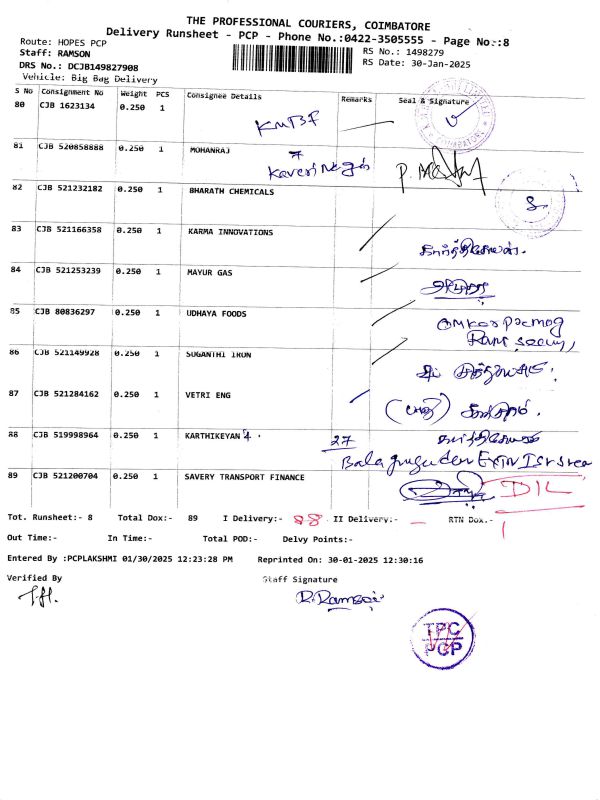 THE PROFESSIONAL COURIERS, COIMBATORE
Delivery Runsheet - PCP - Phone No.:0422-3505555 - Page No.:8
Route: HOPES PCP
RS No.: 1498279
Staff: RAMSON
RS Date: 30-Jan-2025
DRS No.: DCJB149827908
Vehicle: Big Bag Delivery
S No Consignment No Weight PCS Consignee Details Remarks Seal & Signature
80 CJB 1623134 0.250 1 KMBF
81 CJB 520858888 0.250 1 MOHANRAJ
Kaveri Nagar
82 CJB 521232182 0.250 1 BHARATH CHEMICALS
83 CJB 521166358 0.250 1 KARMA INNOVATIONS
கார்த்திகேயன்.
84 CJB 521253239 0.250 1 MAYUR GAS
85 CJB 80836297 0.250 1 UDHAYA FOODS
86 CJB 521149928 0.250 1 SUGANTHI IRON
87 CJB 521284162 0.250 1 VETRI ENG
88 CJB 519998964 0.250 1 KARTHIKEYAN 27
89 CJB 521200704 0.250 1 SAVERY TRANSPORT FINANCE
DIL
Tot. Runsheet:- 8 Total Dox:- 89 I Delivery:- 88 II Delivery:- — RTN Dox.- 1
Out Time:- In Time:- Total POD:- Delvy Points:-
Entered By :PCPLAKSHMI 01/30/2025 12:23:28 PM Reprinted On: 30-01-2025 12:30:16
Verified By Staff Signature
R. Ramson
TPC
PCP